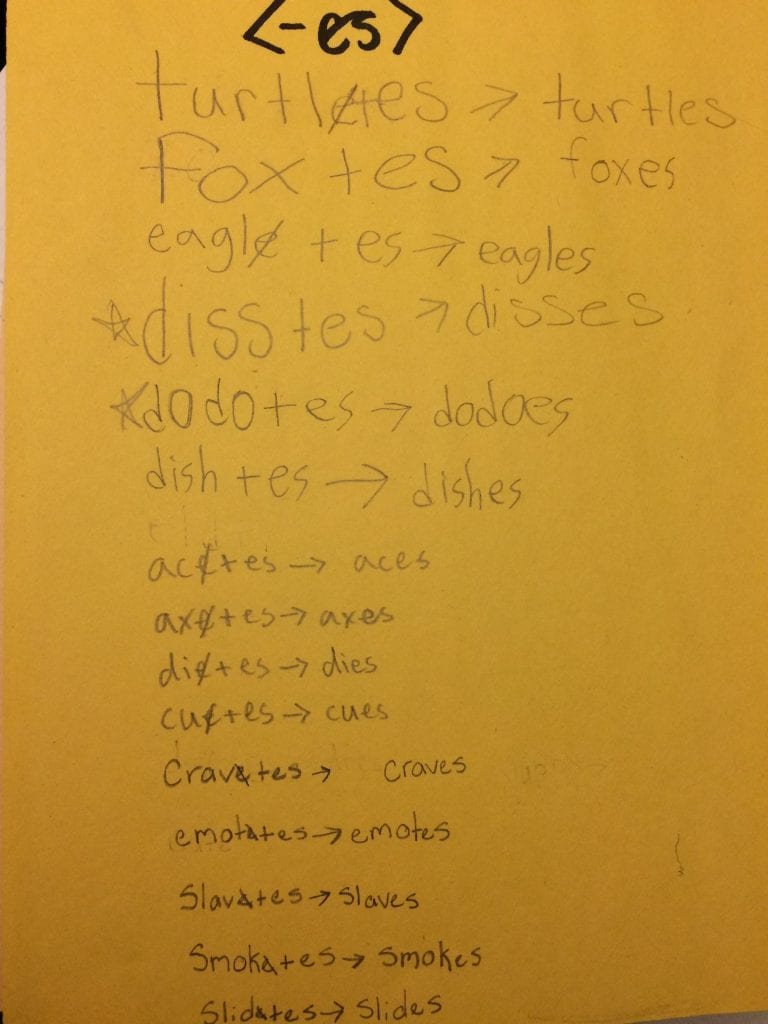 <-es>
turtle+es → turtles
fox +es → foxes
eagle + es → eagles
☆diss+es → disses
☆dodo+es → dodoes
dish +es → dishes
ace+es → aces
axe+es → axes
die+es → dies
cue+es → cues
Crave+es → craves
emote+es → emotes
Slave+es → Slaves
Smoke+es → Smokes
Slide+es → Slides